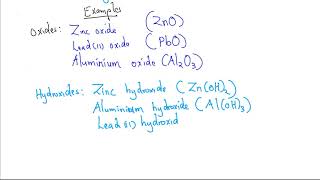 Examples
Oxides: Zinc oxide (ZnO)
Lead(II) oxide (PbO)
Aluminium oxide (Al₂O₃)
Hydroxides: Zinc hydroxide (Zn(OH)₂)
Aluminium hydroxide (Al(OH)₃)
Lead(II) hydroxid